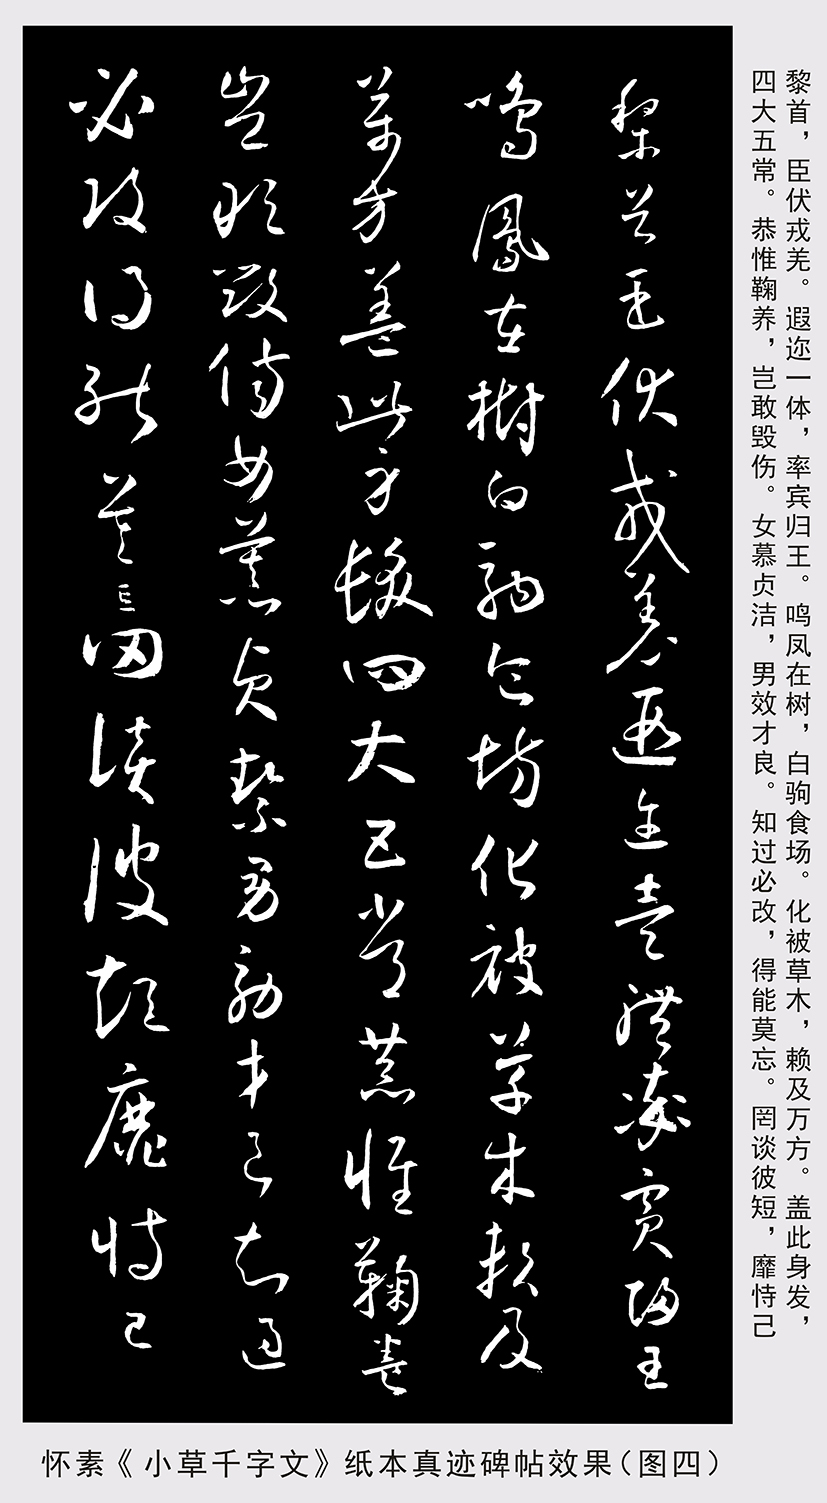 黎首，臣伏戎羌。遐迩一体，率宾归王。鸣凤在树，白驹食场。化被草木，赖及万方。盖此身发，
四大五常。恭惟鞠养，岂敢毁伤。女慕贞洁，男效才良。知过必改，得能莫忘。罔谈彼短，靡恃己
黎首臣伏戎羌遐迩壹體率賓歸王
鳴鳳在樹白駒食場化被草木賴及
萬方蓋此身髮四大五常恭惟鞠養
豈敢毀傷女慕貞絜男效才良知過
必改得能莫忘罔談彼短靡恃己
怀素《小草千字文》纸本真迹碑帖效果（图四）